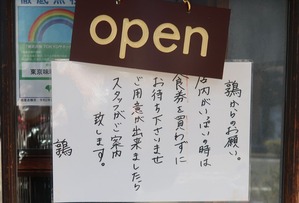 open
鶏からのお願い。
店内がいっぱいの時は
食券を買わずに
お待ち下さいませ
ご用意が出来ましたら
スタッフがご案内
致します。
鶏